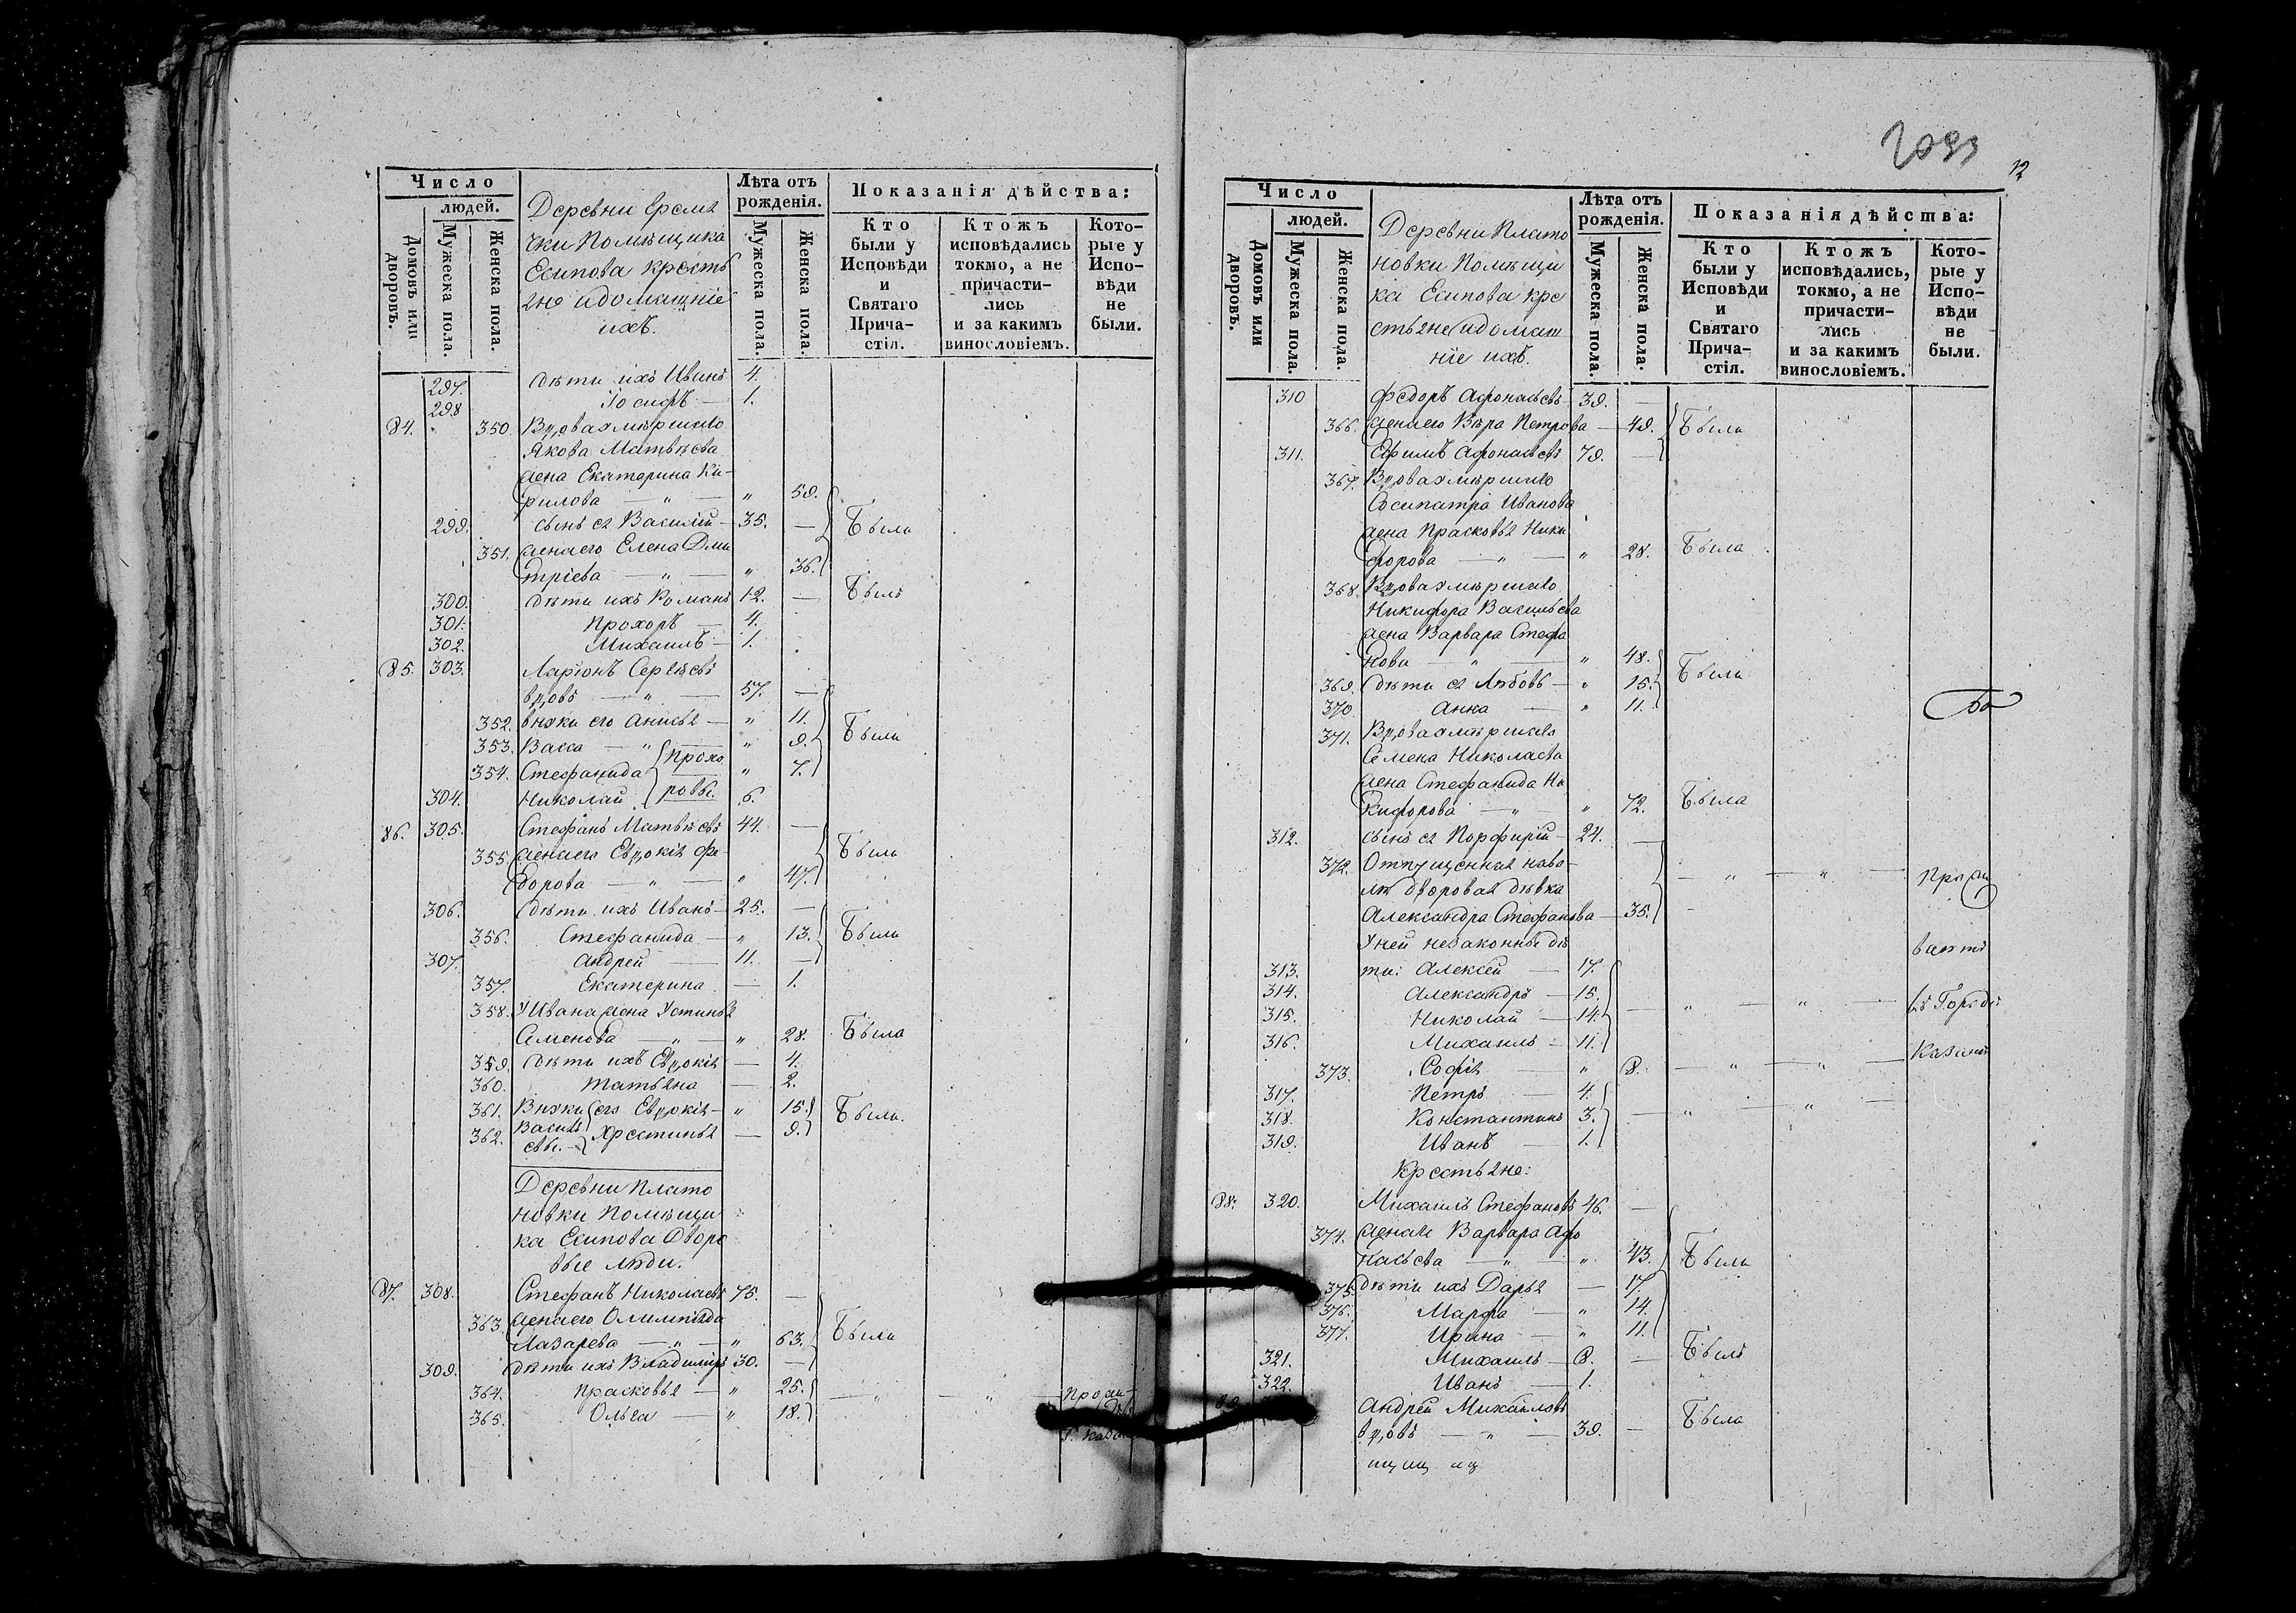 Число
людей.
Домовъ или дворовъ.
Мужеска пола.
Женска пола.
Деревни Еремя
чки Помѣщика
Есипова крестья
яне и домашніе
ихъ.
Лѣта отъ
рожденія.
Мужеска пола.
Женска пола.
Показанія дѣйства:
Кто
были у
Исповѣди
и
Святаго
Прича-
стія.
Ктожъ
исповѣдались
токмо, а не
причасти-
лись
и за какимъ
винословіемъ.
Кото-
рые у
Испо-
вѣди
не
были.
297. дѣти ихъ Иванъ 4.
298 Іосифъ — 1.
84. 350. Вдова умершаго
Якова Матвѣева
жена Екатерина Ки-
рилова — „ — „ 59.
299. сынъ ея Василій — 35. — Были
351. жена его Елена Дми
тріева — „ — „ 36.
300. дѣти ихъ Романъ 12. — Былъ
301. Прохоръ — 4.
302. Михаилъ — 1.
85. 303. Ларіонъ Сергѣевъ
вдовъ — „ — 57. —
352. внуки его Анисья — „ 11. Были
353. Васса — „ — „ 9.
Прохо
354. Стефанида „ 7.
ровы.
304. Николай 6.
86. 305. Стефанъ Матвѣевъ 44. —
355. жена его Евдокія Фе- Были
дорова — „ — „ 47.
306. дѣти ихъ Иванъ — 25. —
356. Стефанида — „ 13. Были
307. Андрей — 11. —
357. Екатерина — 1.
358. У Ивана жена Устинья
Семенова — „ — „ 28. Была
359. дѣти ихъ Евдокія — 4.
360. Татьяна — 2.
361. Внуки его Евдокія — „ 15. Были.
Василь
362. евы. Христинья — 9.
Деревни Плато
новки Помѣщи
ка Есипова Дворо
вые люди.
87. 308. Стефанъ Николаевъ 75. —
363. жена его Олимпіада
Лазарева — „ — „ 63. Были
309. дѣти ихъ Владиміръ 30. —
364. Прасковья — „ 25. — „ — „ — Прож-
365. Ольга — „ 18.
Г. Казан
12
Число
людей.
Домовъ или дворовъ.
Мужеска пола.
Женска пола.
Деревни Плато
новки Помѣщи
ка Есипова кре
стьяне и домаш
ніе ихъ.
Лѣта отъ
рожденія.
Мужеска пола.
Женска пола.
Показанія дѣйства:
Кто
были у
Исповѣди
и
Святаго
Прича-
стія.
Ктожъ
исповѣдались,
токмо, а не
причасти-
лись
и за какимъ
винословіемъ.
Кото-
рые у
Испо-
вѣди
не
были.
310 Федоръ Афонасьевъ 39. —
366. жена его Вѣра Петрова — 49. Были
311. Ефимъ Афонасьевъ 79. —
367. Вдова умершаго
Осипатра Иванова
жена Прасковья Ники
форова — „ — „ 28. Была
368. Вдова умершаго
Никифора Васильева
жена Варвара Стефа
нова — „ — „ 48. Были
369. дѣти ея Любовь — „ 15.
370. Анна — „ 11.
371. Вдова умершаго
Семена Николаева
жена Стефанида Ни
кифорова — „ — „ 72. Была
312. сынъ ея Порфирій — 24. —
372. Отпущенная на во-
лю дворовая дѣвка — „ — „ — Прож
Александра Стефанова — 35.
У ней незаконные дѣ
313. ти: Алексей — 17.
314. Александръ — 15. — „ — „ — въ Городѣ
315. Николай — 14.
316. Михаилъ — 11. Казани
373. Софія — „ 8. — „ — „ —
317. Петръ — 4.
318. Константинъ 3. — „ — „ —
319. Иванъ — 1.
Крестьяне:
88. 320. Михаилъ Стефановъ 46. —
374. жена Варвара Афо
насьева — „ — „ 43. Были
375. дѣти ихъ Дарья — 17.
376. Марфа — „ 14.
377. Ирина — „ 11.
321. Михаилъ — 8. — Былъ
322. Иванъ — 1.
Андрей Михайловъ
вдовъ — „ — 39. — Была